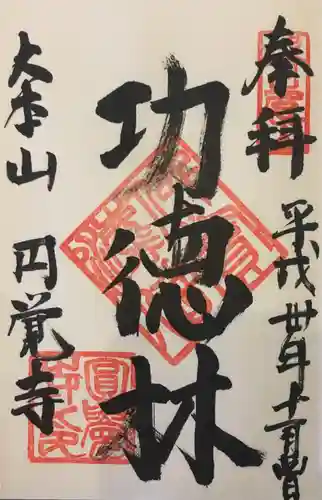 奉拝
平成卅年十一月
功徳林
大本山 円覚寺